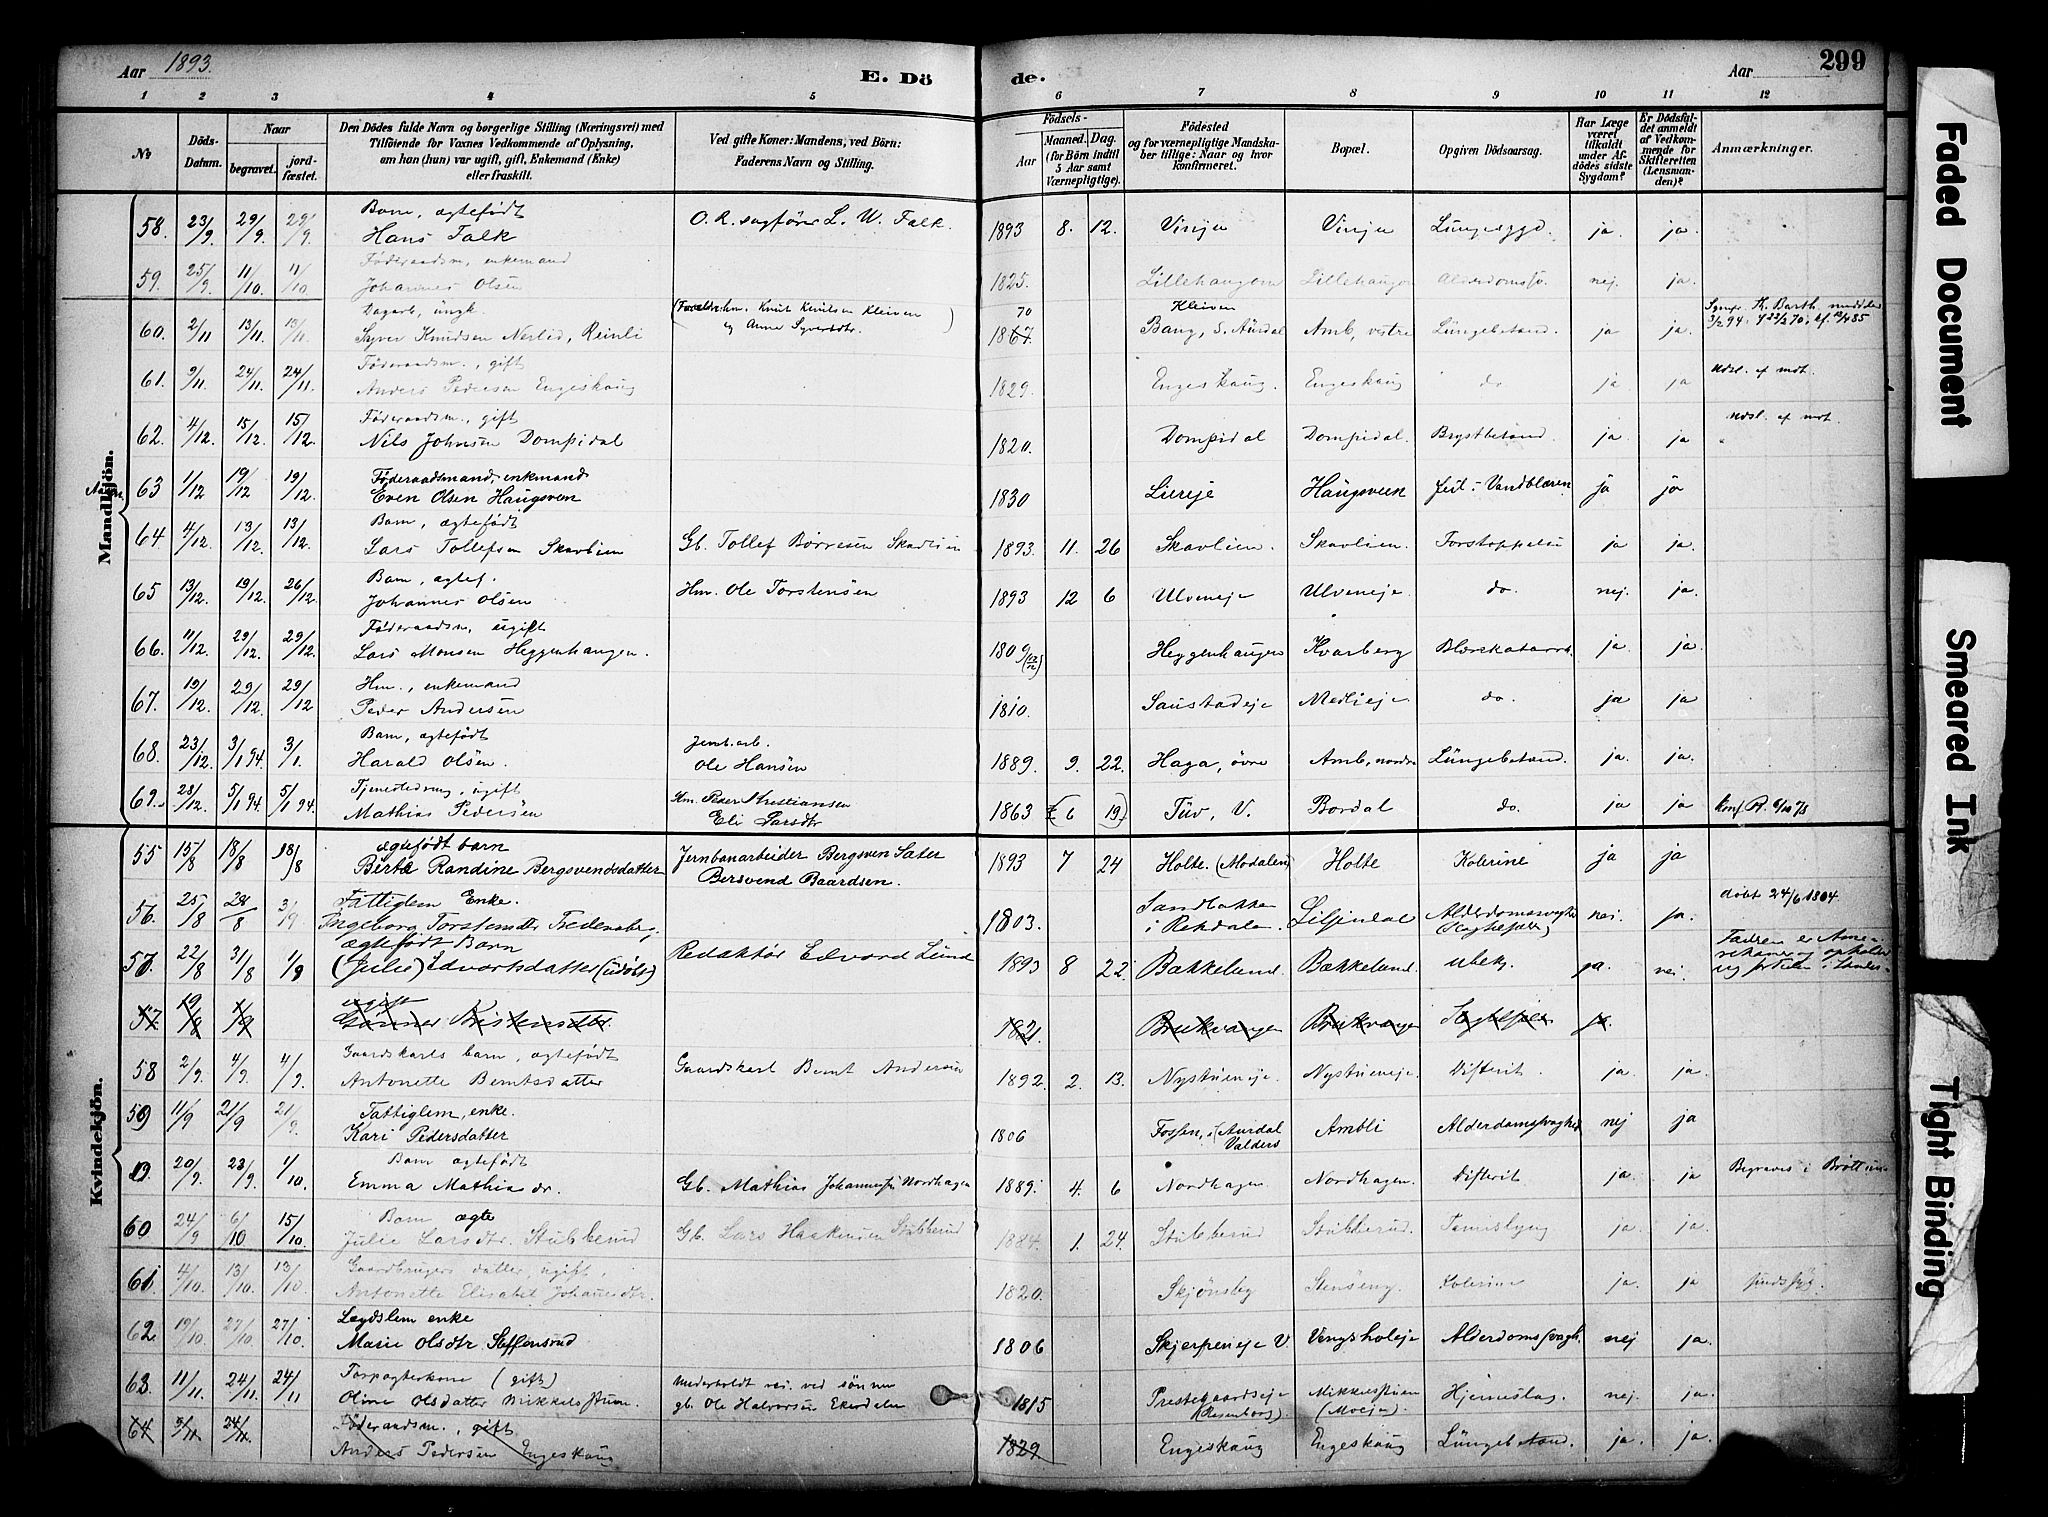 Aar 1893.
E. Dö
de.
Aar
299
1 2 3 4 5 6 7 8 9 10 11 12
No
Döds-Datum.
Naar
begravet.
jord-fæstet.
Den Dödes fulde Navn og borgerlige Stilling (Næringsvei) med
Tilföiende for Voxnes Vedkommende af Oplysning,
om han (hun) var ugift, gift, Enkemand (Enke)
eller fraskilt.
Ved gifte Koner: Mandens, ved Börn:
Faderens Navn og Stilling.
Födsels-
Aar
Maaned. Dag.
(for Börn indtil
5 Aar samt
Værnepligtige).
Födested
og for værnepligtige Mandska-
ber tillige: Naar og hvor
konfirmeret.
Bopæl.
Opgiven Dödsaarsag.
Har Læge
været
tilkaldt
under Af-
dödes sidste
Sygdom?
Er Dödsfal-
det anmeldt
af Vedkom-
mende for
Skifteretten
(Lensman-
den)?
Anmærkninger.
Mandkjön.
58. 23/9. 29/9. 29/9. Barn, ægtefødt
Hans Falk O. R. sagfører L. W. Falk. 1893 8. 12. ja. ja.
59. 25/9. 11/10. 11/10 Føderaadsm., enkemand
Johannes Olsen 1825. Lillehaugen nej. ja.
60. 2/11 13/11. 13/11. Dagarb., ungk.
Syver Knudsen Nerlid, Reinli
Knut Knutsen Kleiven
og Anne Syversdtr
70
1867.
Kleiven
Bang, S. Aurdal Amb, vestre Lungebetænd. ja ja
61. 9/11. 24/11. 24/11 Føderaadsm., gift
Anders Pedersen Engeskaug 1829. Engeskaug. Engeskaug do ja ja Udsl. af mdt.
62. 4/12. 15/12. 15/12. Føderaadsm., gift
Nils Johnsen Dompidal 1820. Dompidal Dompidal. Brystbetænd. ja. ja Udsl. af mdt.
63 1/12 19/12 19/12. Føderaadsmand, enkmand
Even Olsen Haugsveen 1830 Haugsveen ja ja
64. 4/12. 13/12. 13/12. Barn, ægtefødt
Lars Tollefsen Skavlien Gb. Tollef Børresen Skavlien 1893. 11. 26 Skavlien. Skavlien. Forstoppelse ja ja.
65 13/12. 19/12. 26/12. Barn, ægtef.
Johannes Olsen Hm. Ole Torstensen 1893 12 6 Ulveneje Ulveneje. do. nej. ja.
66. 11/12. 29/12. 29/12. Føderaadsm, ugift
Lars Monsen Heggenhaugen. 1809 Heggenhaugen Kvarberg Blærekatarrh. ja. ja
67. 19/12. 29/12. 29/12 Hm., enkemand
Peder Andersen 1810. Saustadeje Medlieje do. ja ja
68. 23/12. 3/1 94. 3/1. Barn, ægtefødt
Harald Olsen. Jernb.arb.
Ole Hansen 1889. 9. 22. Haga, øvre Amb, nordre Lungebetænd. ja ja.
69. 28/12. 5/1 94. 5/1 94 Tjenestedreng, ugift
Mathias Pedersen Hm. Peder Kristiansen
Eli Larsdtr 1863 (6 19) Tuv, V. Bordal do. ja ja
Kvindekjön.
55 15/8 18/8 18/8 ægtefødt barn
Berthe Randine Bergsvendsdatter Jernbanarbeider Bergsven Sater
Bersvend Baardsen. 1893 7 24 Holte. (Modalen) Holte Kolerine ja ja
56. 25/8 28/8 3/9 Fattiglem Enke.
Ingeborg Torstensdtr Fredensberg 1803. Sandbakken
i Rekdalen. Liljedal Alderdomssvaghed nei. ja. døbt 24/6 1804
57. 22/8 31/8 1/9 ægtefødt Barn
(Julie) Edvartsdatter (udøbt) Redaktør Edvard Lund 1893 8 22 Bakkelund. Bækkelund. ubek. ja. nei. Faderen er Ame-
rikaner og opholder
57. 19/8 1/9 ugift
Gunner Kristensdtr. 1821. Brukvangen Brukvangen ja.
58 2/9. 4/9. 4/9. Gaardskarls barn, ægtefødt
Antonette Berntsdatter Gaardskarl Bernt Andersen 1892. 2. 13. Nystueneje. Nystueneje. Difterit. ja. ja.
59 11/9 21/9 21/9. Fattiglem, enke.
Kari Pedersdatter 1806 Fossen, i Aurdal
Valders Ambli Alderdomssvaghed nej ja
20/9. 23/9. 1/10. Barn ægtefødt
Emma Mathiasdr. Gb. Mathias Johannessen Nordhagen 1889. 4. 6 Nordhagen Nordhagen. Difterit ja. ja Begraves i Brøttum
60 24/9 6/10 15/10. Barn ægte
Julie Larsdtr. Stubberud Gb. Lars Haakensen Stubberud 1884. 1. 24. Stubberud Stubberud. ja. ja.
61 4/10. 13/10. 13/10. Gaardbrugers datter, ugift.
Antonette Elisabet Johannesdtr. 1820. Skjønsby Stenseng. Kolerine ja. ja sindssyg.
62. 19/10. 27/10 27/10. Lægdslem enke
Marie Olsdtr Steffensrud 1806 Skjerpeneje V. Vengsholeje. Alderdomssvagh. nej ja.
63. 11/11. 24/11. 24/11 Forpagterkone (gift)
Oline Olsdatter Mikkelsstuen. Underholdt ved sønnen
gb. Ole Halvorsen Ekerdalen 1815 Prestegaardseje
(Rosenborg). Mikkelsstuen
(Moejen). Hjerneslag. nej. ja.
64 5/11. 24/11. Føderaadsm., gift
Anders Pedersen Engeskaug 1829. Engeskaug Engeskaug Lungebetænd. ja. ja.
Faded Document
Smeared Ink
Tight Binding